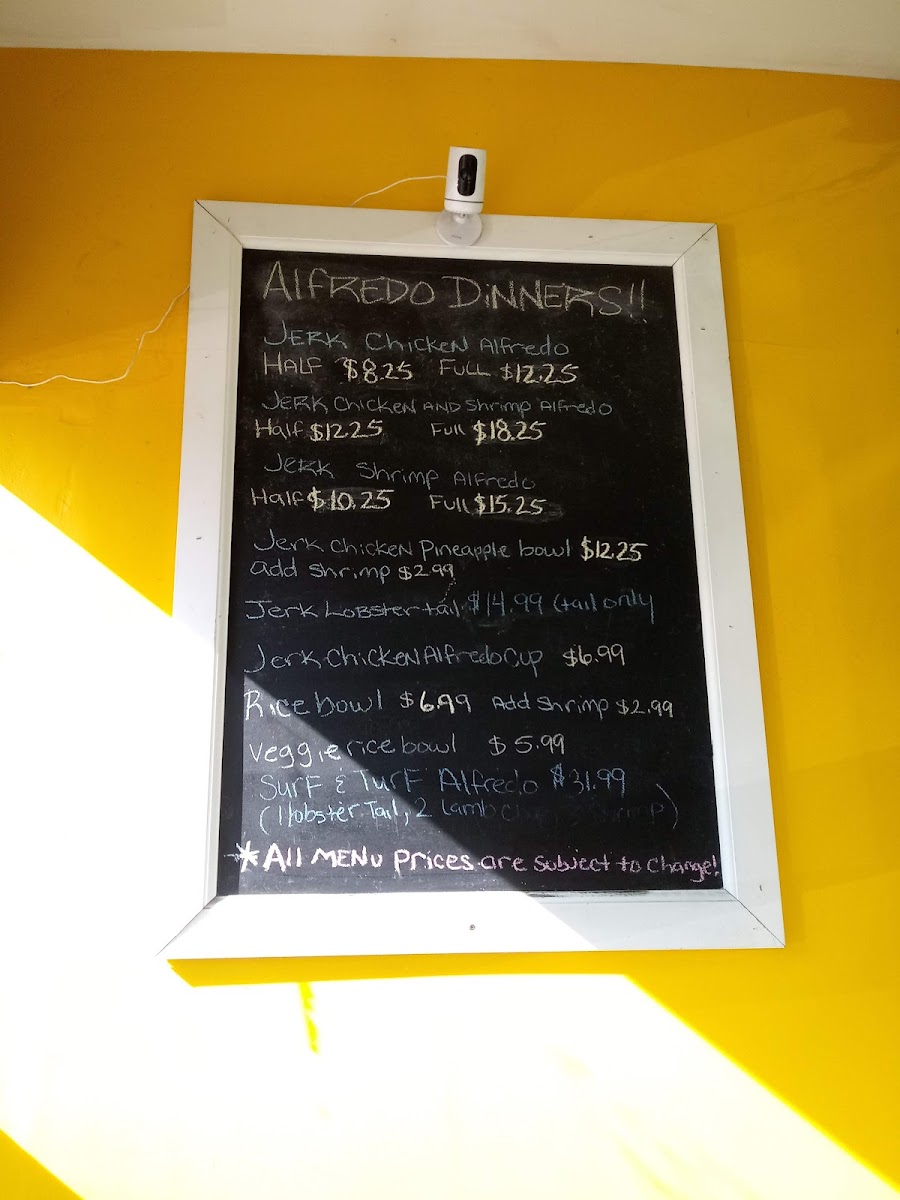 AlfREDO DiNNERS!!
JERK Chicken Alfredo
HALF $8.25 FULL $12.25
JERK Chicken AND Shrimp Alfredo
Half $12.25 Full $18.25
Jerk Shrimp Alfredo
Half $10.25 Full $15.25
Jerk Chicken Pineapple bowl $12.25
add shrimp $2.99
Jerk Lobster tail $14.99 (tail only
Jerk Chicken Alfredo Cup $6.99
Rice bowl $6.99 Add shrimp $2.99
Veggie rice bowl $5.99
Surf & Turf Alfredo $31.99
(1 lobster Tail, 2 Lamb Shrimp)
*All MENu Prices are subject to change!